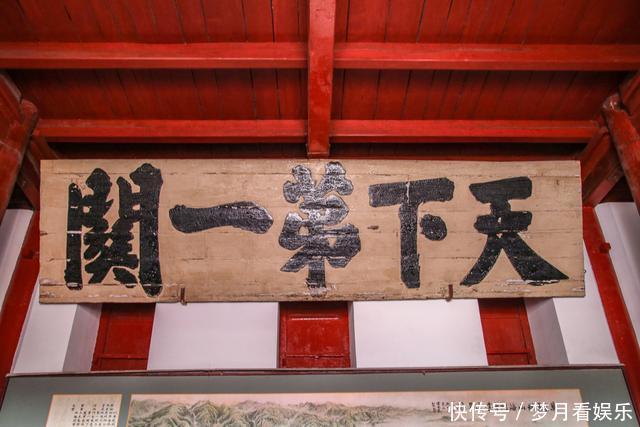 天下第一關
快传号 / 梦月看娱乐